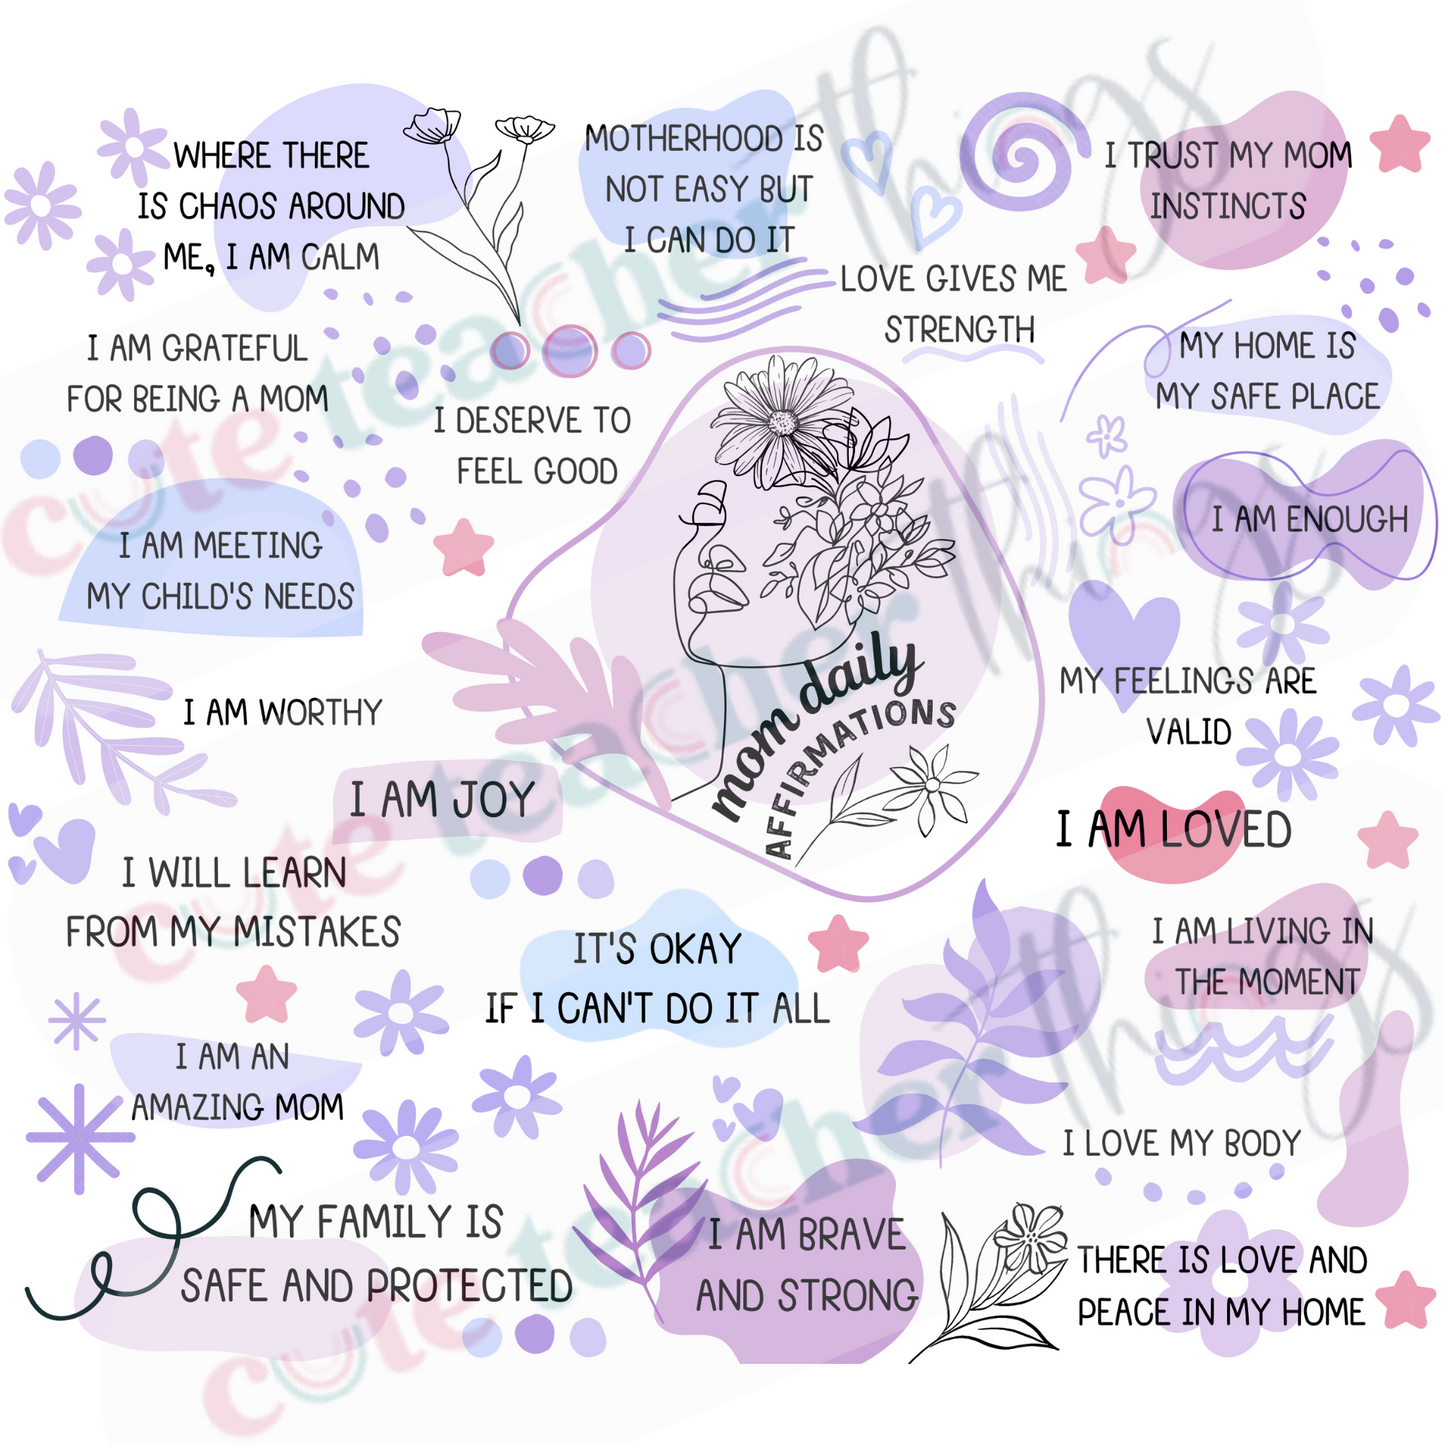 WHERE THERE
IS CHAOS AROUND
ME, I AM CALM
MOTHERHOOD IS
NOT EASY BUT
I CAN DO IT
I TRUST MY MOM
INSTINCTS
LOVE GIVES ME
STRENGTH
I AM GRATEFUL
FOR BEING A MOM
I DESERVE TO
FEEL GOOD
MY HOME IS
MY SAFE PLACE
I AM ENOUGH
I AM MEETING
MY CHILD'S NEEDS
I AM WORTHY
mom daily
AFFIRMATIONS
MY FEELINGS ARE
VALID
I AM JOY
I AM LOVED
I WILL LEARN
FROM MY MISTAKES
IT'S OKAY
IF I CAN'T DO IT ALL
I AM LIVING IN
THE MOMENT
I AM AN
AMAZING MOM
I LOVE MY BODY
MY FAMILY IS
SAFE AND PROTECTED
I AM BRAVE
AND STRONG
THERE IS LOVE AND
PEACE IN MY HOME
cute teacher things
cute teacher things
cute teacher things